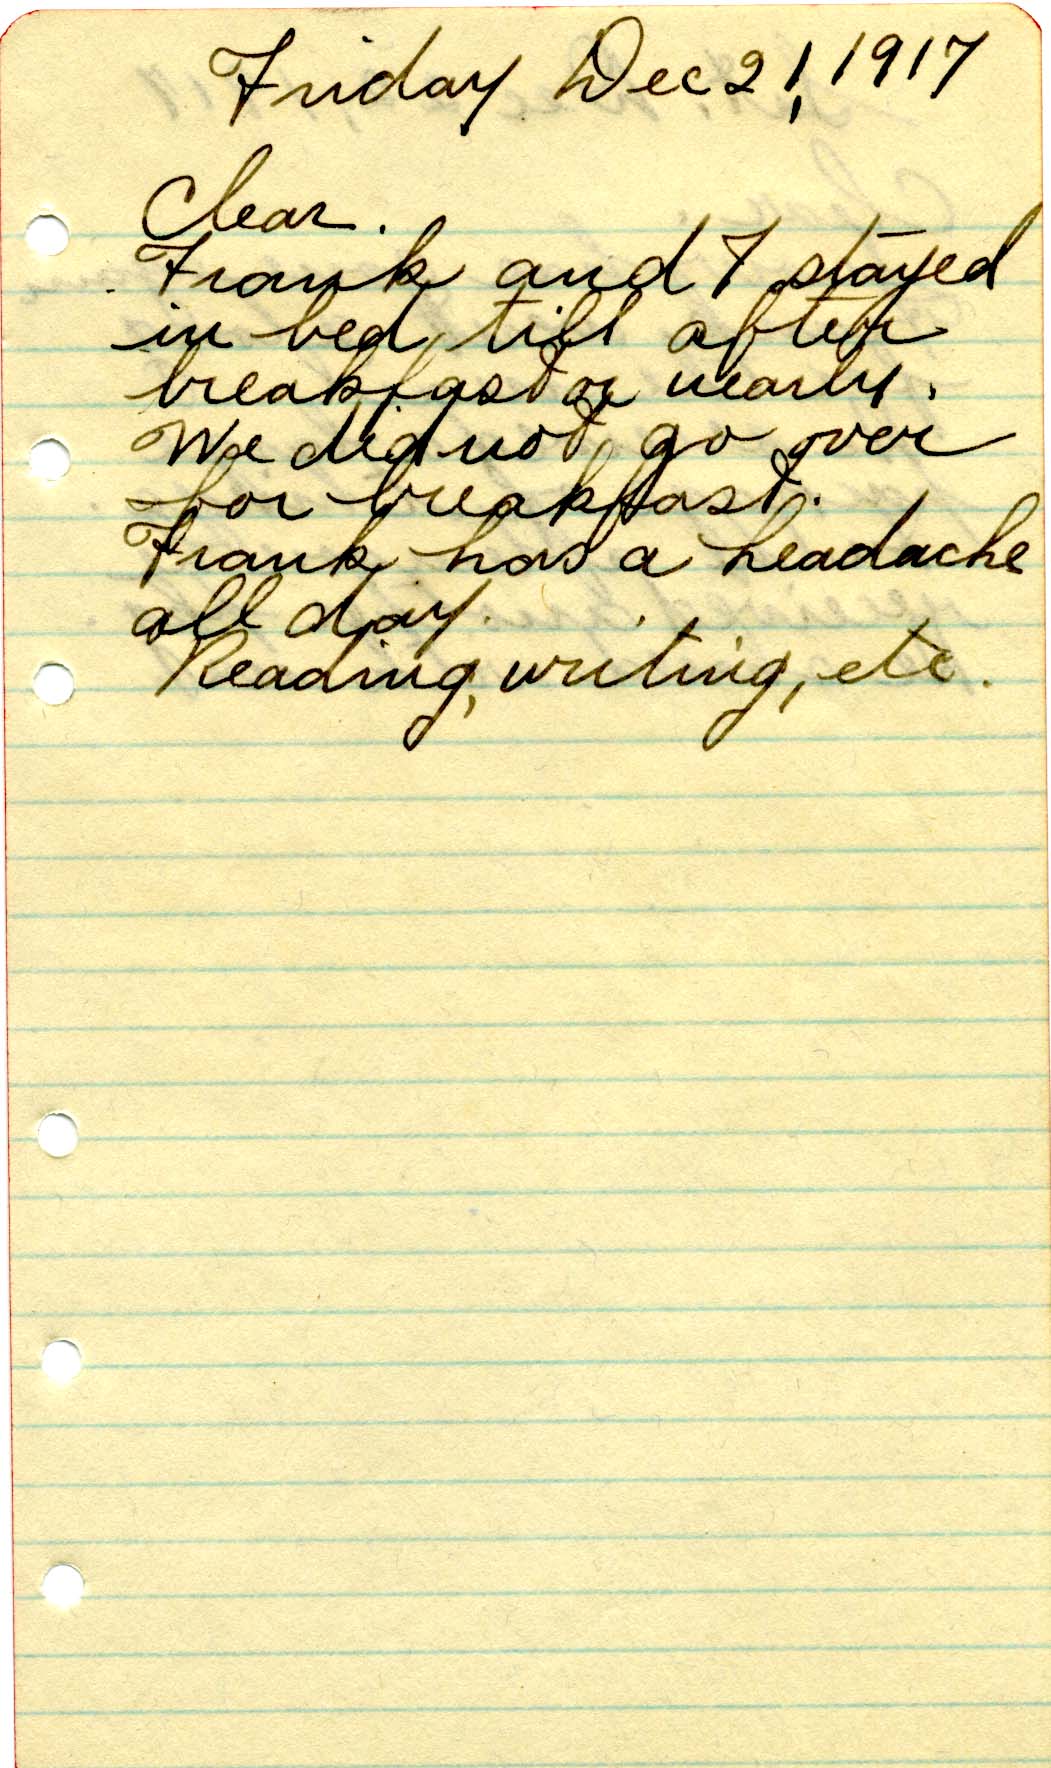 Friday Dec 21, 1917
Clear.
Frank and I stayed
in bed till after
breakfast or nearly.
We did not go over
for breakfast.
Frank has a headache
all day.
Reading, writing, etc.